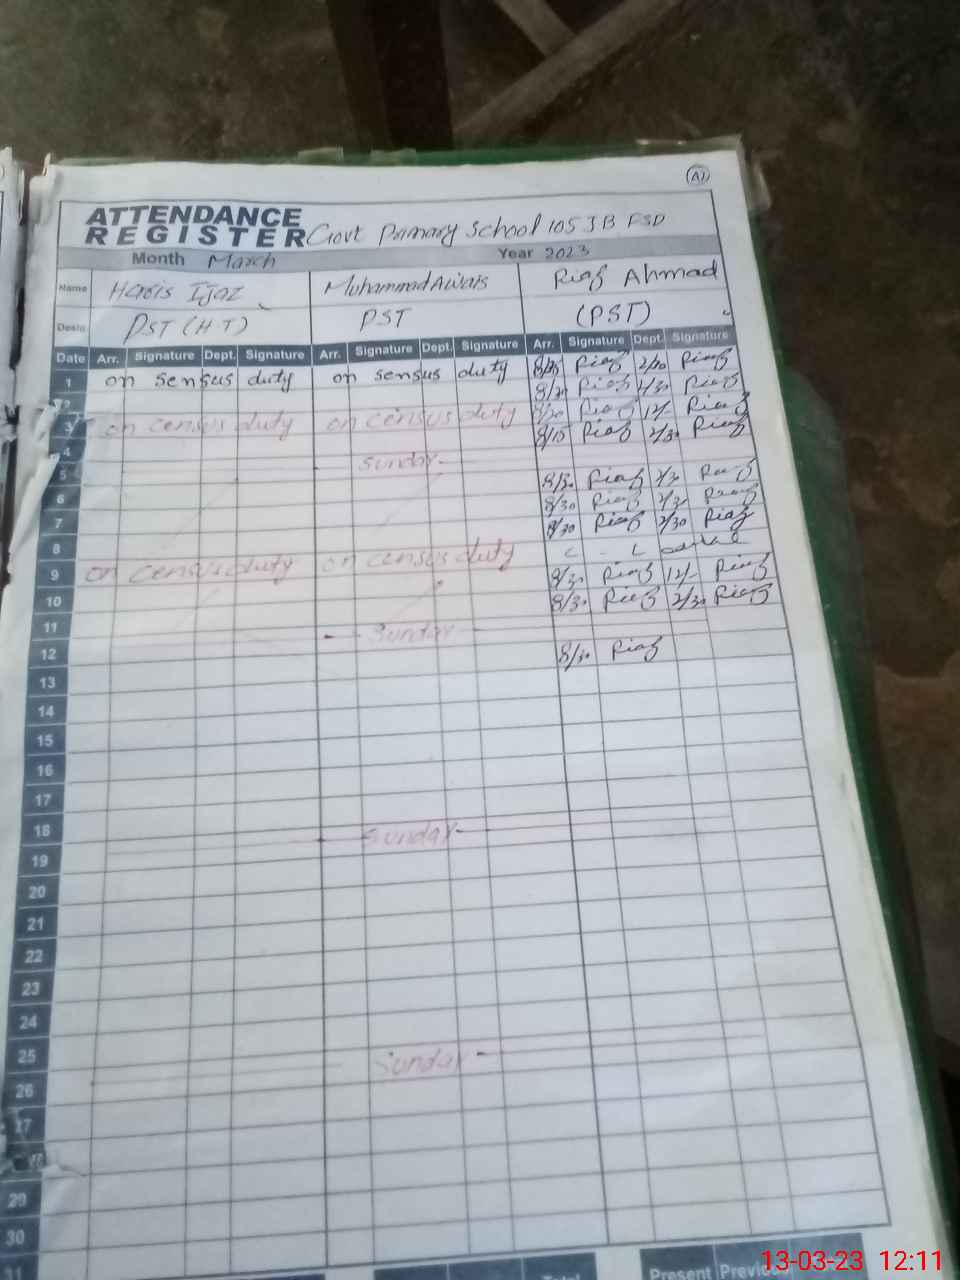 A1
ATTENDANCE
REGISTER Govt Primary School 105 JB FSD
Month March Year 2023
Name Haris Ijaz Muhammad Awais Riaz Ahmad
PST (H.T) PST (PST)
Date Arr. Signature Dept. Signature Arr. Signature Dept. Signature Arr. Signature Dept. Signature
1 on sensus duty on sensus duty Riaz 2/30 Riaz
2 8/30 Riaz 2/30 Riaz
3 on census duty on census duty 8/30 Riaz 12/- Riaz
4 8/15 Riaz 2/30 Riaz
5 Sunday
6 8/30 Riaz 2/30 Riaz
7 8/30 Riaz 2/30 Riaz
8 8/30 Riaz 2/30 Riaz
9 on census duty on census duty C - L
10 8/30 Riaz 12/- Riaz
11 8/30 Riaz 2/30 Riaz
12 - Sunday -
13 8/30 Riaz
14
15
16
17
18
19 - Sunday -
20
21
22
23
24
25
26 Sunday -
27
29
30
31
Total
Present Previous
13-03-23 12:11